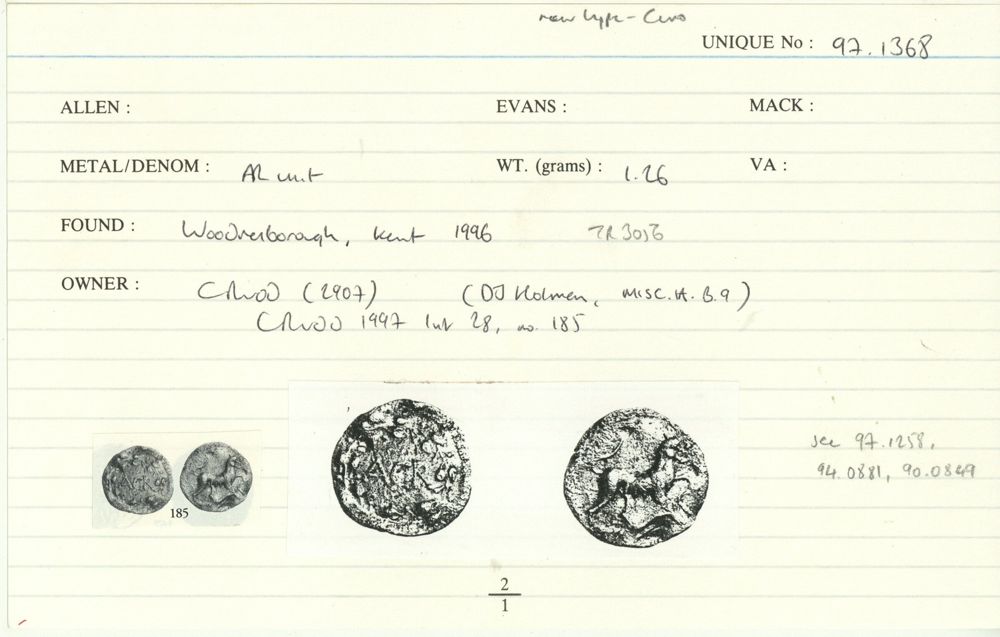 new type - Cuno
UNIQUE No : 97.1368
ALLEN : EVANS : MACK :
METAL/DENOM : AR unit WT. (grams) : 1.26 VA :
FOUND : Woodnesborough, Kent 1996 TR 3056
OWNER : CRWOO (2907) (DJ Holman, MISC.IA.B.9)
CRWOO 1997 list 28, no. 185
see 97.1258,
94.0881, 90.0849
185
2
1